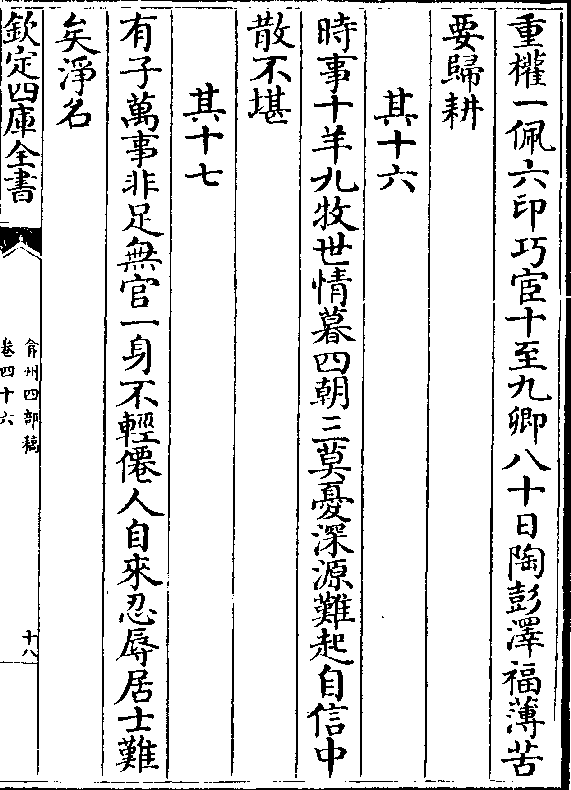 重權一佩六印巧宦十至九卿八十日陶彭澤福薄苦
要歸耕
其十六
時事十羊九牧世情暮四朝三莫憂深源難起自信中
散不堪
其十七
有子萬事非足無官一身不輕僊人自來忍辱居士難
矣淨名
欽定四庫全書
弇州四部稿
卷四十六
十八